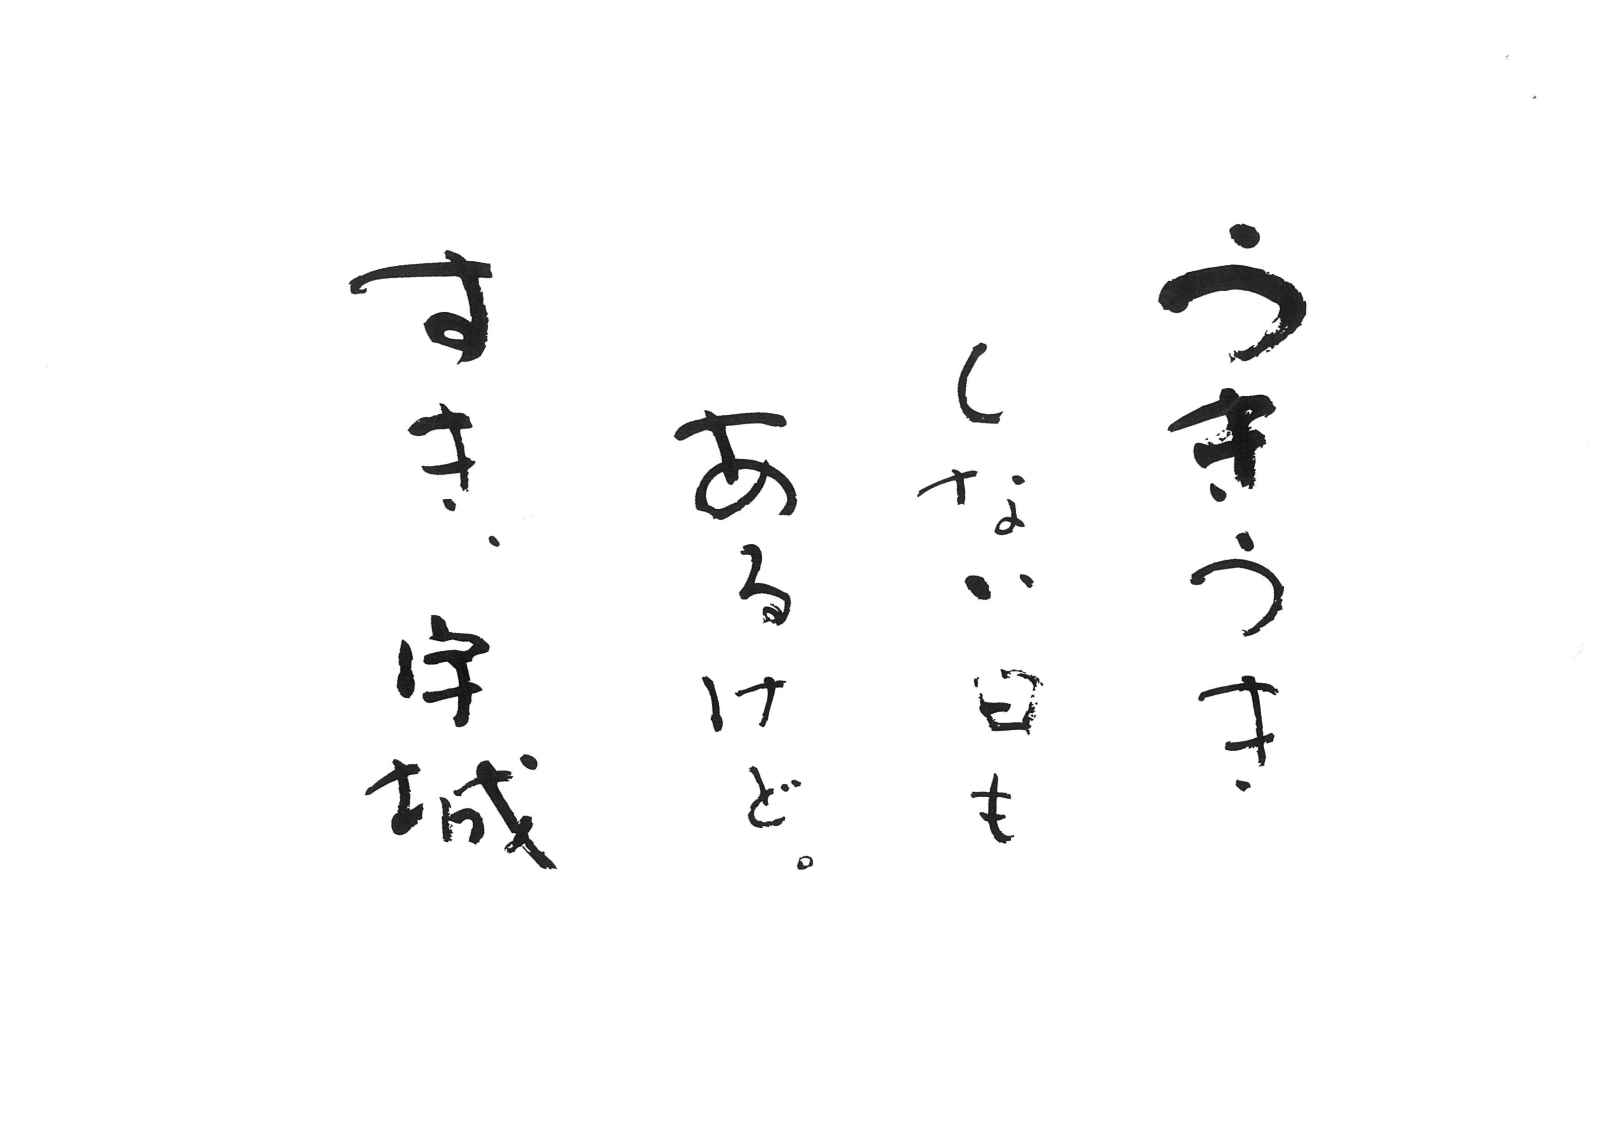 うきうき
しない日も
あるけど。
すき、宇城